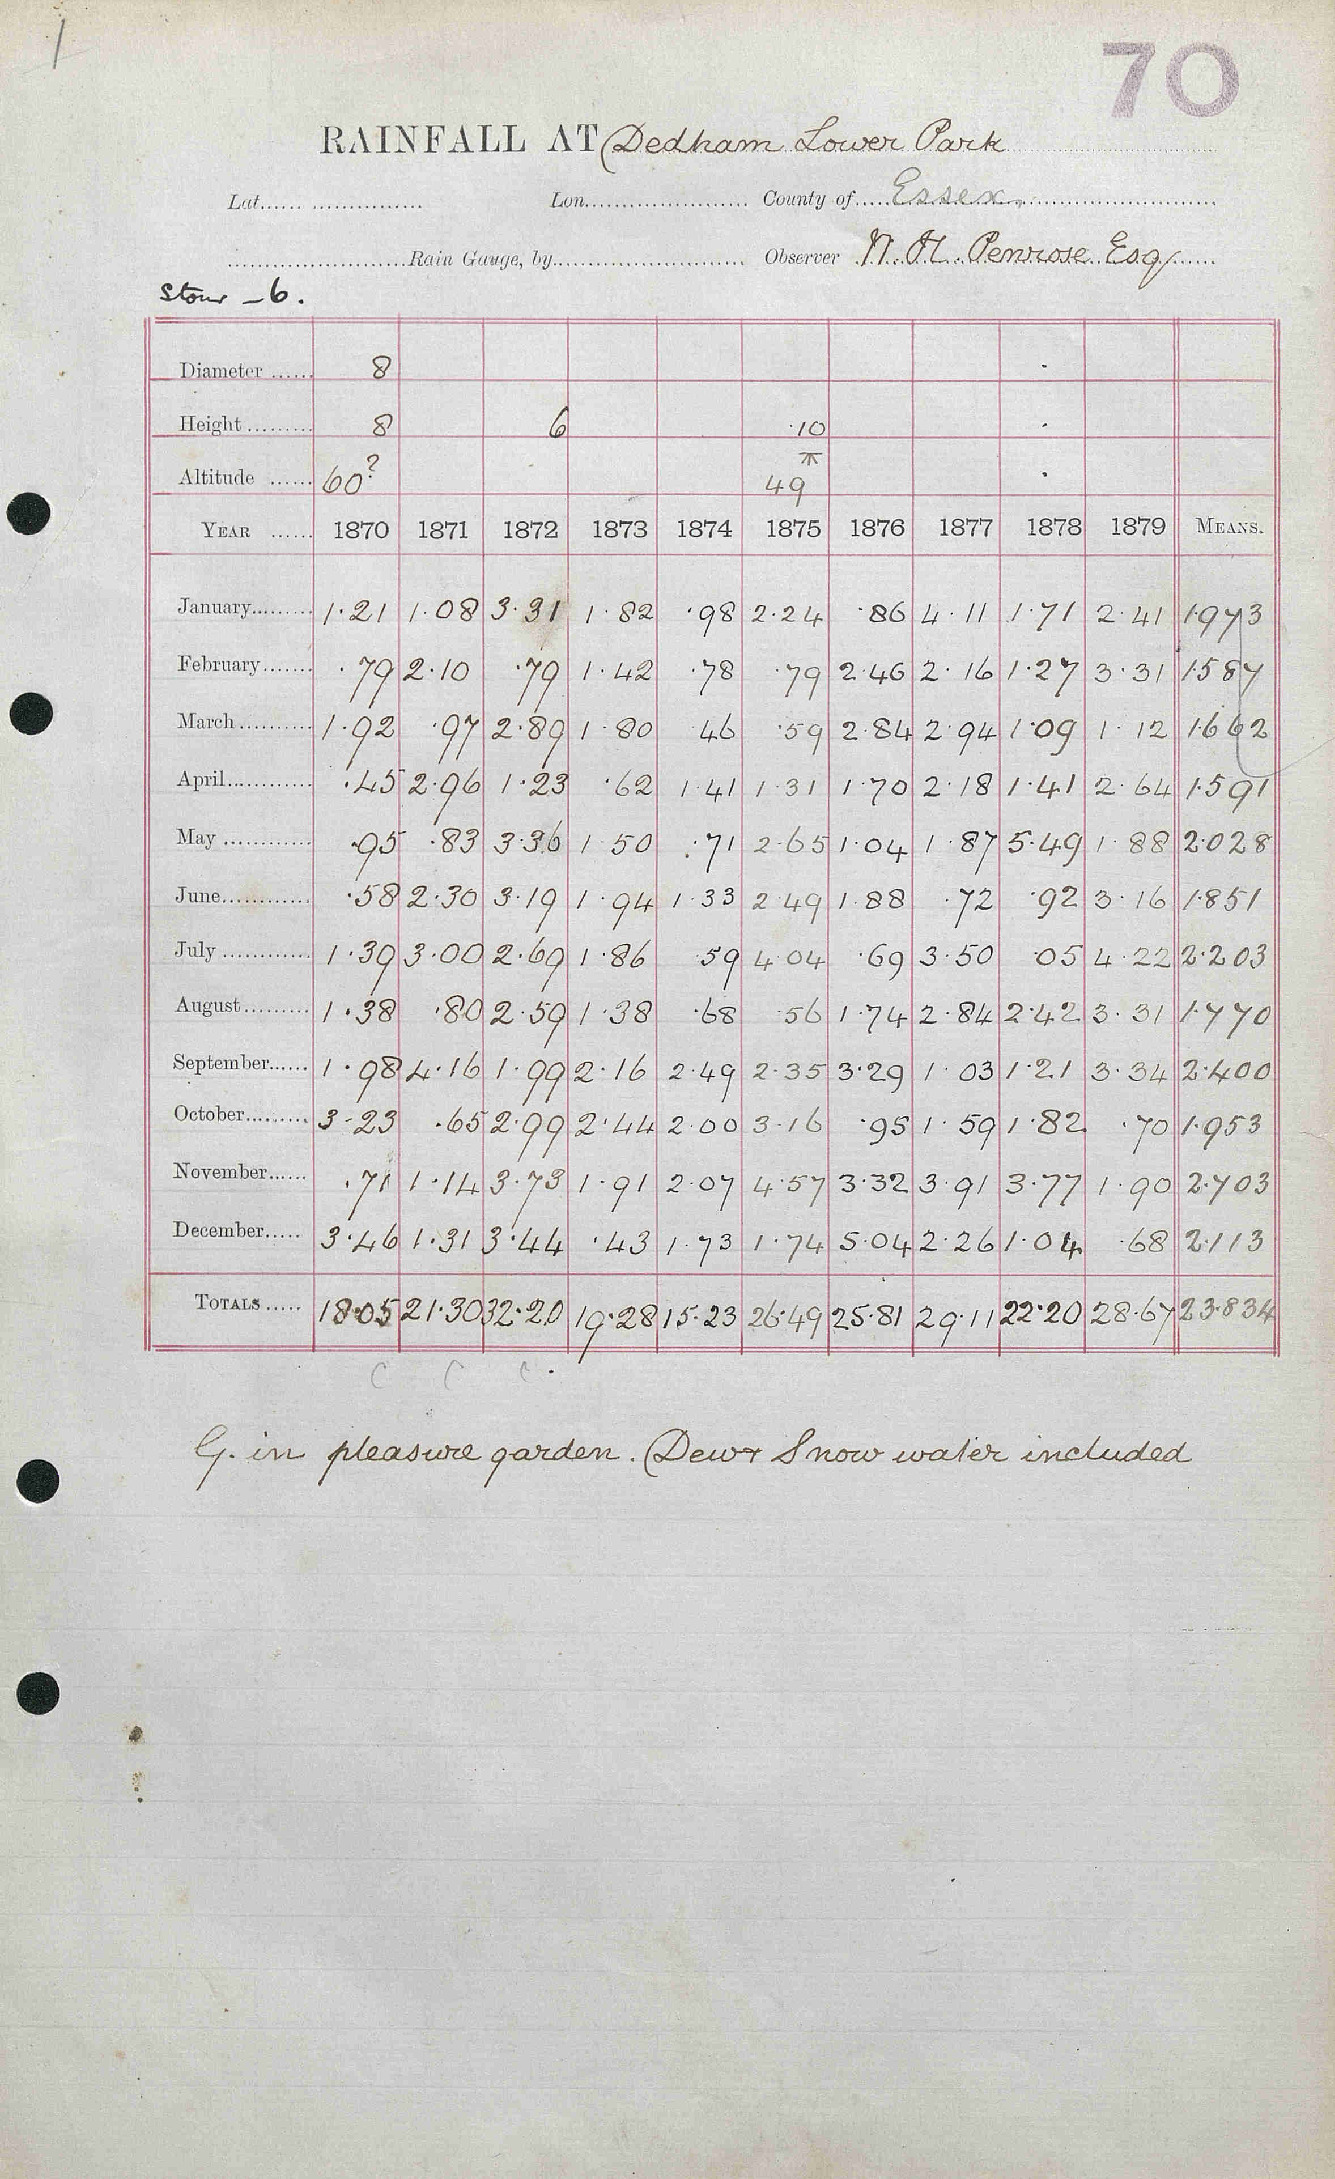 1
70
RAINFALL AT Dedham Lower Park
Lat. Lon. County of Essex.
Rain Gauge, by Observer N. H. Penrose Esq
Stour - 6.
Diameter 8
Height 8 6 ·10
Altitude 60? 49
YEAR 1870 1871 1872 1873 1874 1875 1876 1877 1878 1879 MEANS.
January 1·21 1·08 3·31 1·82 ·98 2·24 ·86 4·11 1·71 2·41 1·973
February ·79 2·10 ·79 1·42 ·78 ·79 2·46 2·16 1·27 3·31 1·587
March 1·92 ·97 2·89 1·80 ·46 ·59 2·84 2·94 1·09 1·12 1·662
April ·45 2·96 1·23 ·62 1·41 1·31 1·70 2·18 1·41 2·64 1·591
May ·95 ·83 3·36 1·50 ·71 2·65 1·04 1·87 5·49 1·88 2·028
June ·58 2·30 3·19 1·94 1·33 2·49 1·88 ·72 ·92 3·16 1·851
July 1·39 3·00 2·69 1·86 ·59 4·04 ·69 3·50 ·05 4·22 2·203
August 1·38 ·80 2·59 1·38 ·68 ·56 1·74 2·84 2·42 3·31 1·770
September 1·98 4·16 1·99 2·16 2·49 2·35 3·29 1·03 1·21 3·34 2·400
October 3·23 ·65 2·99 2·44 2·00 3·16 ·95 1·59 1·82 ·70 1·953
November ·71 1·14 3·73 1·91 2·07 4·57 3·32 3·91 3·77 1·90 2·703
December 3·46 1·31 3·44 ·43 1·73 1·74 5·04 2·26 1·04 ·68 2·113
TOTALS 18·05 21·30 32·20 19·28 15·23 26·49 25·81 29·11 22·20 28·67 23·834
C C C
G. in pleasure garden. Dew & Snow water included